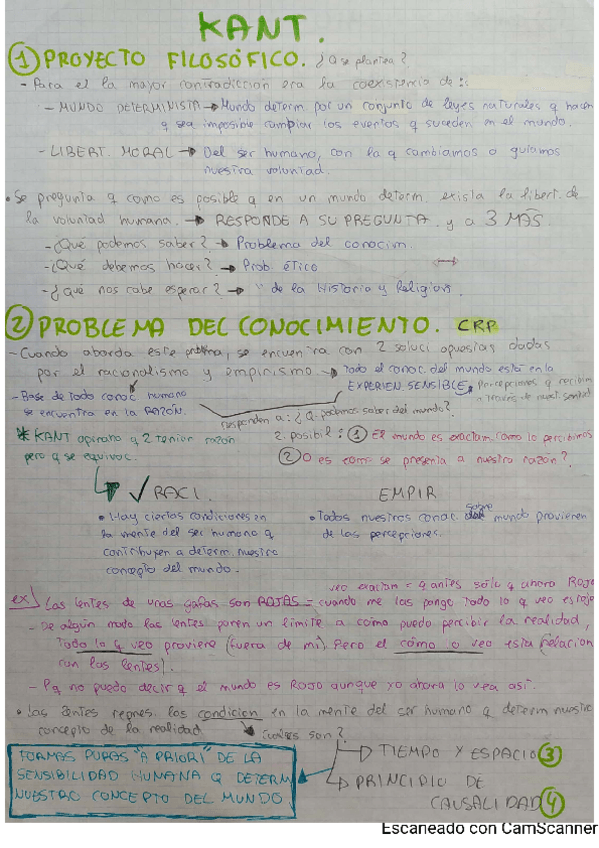 KANT.
① PROYECTO FILOSÓFICO. ¿Q se plantea?
- Para el la mayor contradicción era la coexistencia de:
- MUNDO DETERMINISTA → Mundo determ. por un conjunto de leyes naturales q hacen
q sea imposible cambiar los eventos q suceden en el mundo.
- LIBERT. MORAL → Del ser humano, con la q cambiamos o guiamos
nuestra voluntad.
• Se pregunta q como es posible q en un mundo determ. exista la libert. de
la voluntad humana. → RESPONDE A SU PREGUNTA. y a 3 MÁS
- ¿Qué podemos saber? → Problema del conocim.
- ¿Qué debemos hacer? → Prob. ético
- ¿Qué nos cabe esperar? → " de la Historia y Religión.
② PROBLEMA DEL CONOCIMIENTO. CRP
- Cuando aborda este problma, se encuentra con 2 soluci opuestas dadas
por el racionalismo y empirismo → Todo el conoc. del mundo está en la
EXPERIEN. SENSIBLE. Percepciones q recibim
a través de
- Base de todo conoc. humano
se encuentra en la RAZÓN.
responden a: ¿Q podemos saber del mundo?
* KANT opinaba q 2 tenían razón
pero q se equivoc.
2. posibil: ① El mundo es exactam como lo percibimos
② O es como se presenta a nuestra razón?
✓ RACI.
• Hay ciertas condiciones en
la mente del ser humano q
contribuyen a determ. nuestro
concepto del mundo.
EMPIR
• Todos nuestros conoc. sobre mundo provienen
de las percepciones.
veo exactam = q antes solo q ahora ROJO
ex) Las lentes de unas gafas son ROJAS = cuando me las pongo todo lo q veo es rojo
- De algún modo las lentes ponen un límite a cómo puedo percibir la realidad,
todo lo q veo proviene (fuera de mi). Pero el cómo lo veo está (relacion
con las lentes).
- Pq no puedo decir q el mundo es ROJO aunque yo ahora lo vea así.
• Las lentes repres. las condicion en la mente del ser humano q determ nuestro
concepto de la realidad. → cuáles son?
→ TIEMPO Y ESPACIO ③
→ PRINCIPIO DE
CAUSALIDAD ④
FORMAS PURAS "A PRIORI" DE LA
SENSIBILIDAD HUMANA Q DETERM
NUESTRO CONCEPTO DEL MUNDO
Escaneado con CamScanner